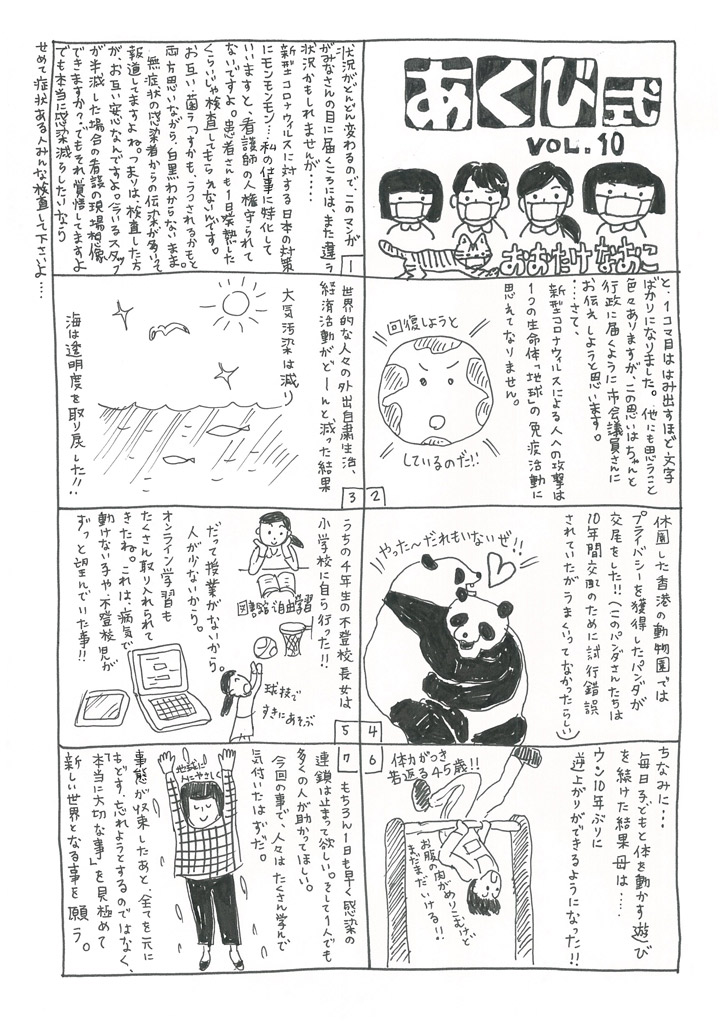 あくび式
VOL.10
おおたけなおこ
状況がどんどん変わるので、このマンガ
がみなさんの目に届くころには、また違う
状況かもしれませんが……
新型コロナウィルスに対する日本の対策
にモンモンモン…私の仕事に特化して
いいますと、看護師の人権守られて
ないですよ。患者さんも1日発熱した
くらいじゃ検査してもらえないんです。
お互い出会うっすかも、うつされるかもと
両方思いながら、白黒わからないまま。
無症状の感染者からの伝染が多いって
報道してますよね。つまりは、検査した方
が、お互い安心なんですよ。
が半減した場合の看護の現場想像
できますか?でもそれ覚悟してますよ
でも本当に感染減らしたいなら
せめて症状ある人みんな検査して下さいよ…
1
と、1コマ目ははみ出すほど文字
ばかりになりました。他にも思うこと
色々ありますが、この思いはちゃんと
行政に届くように市会議員さんに
お伝えしようと思います。
……さて、
新型コロナウィルスによる人への攻撃は
1つの生命体「地球」の免疫活動に
思えてなりません。
回復しようと
しているのだ!!
2
世界的な人々の外出自粛生活、
経済活動がどーんと減った結果
大気汚染は減り
海は透明度を取り戻した!!
3
休園した香港の動物園では
プライバシーを獲得したパンダが
交尾をした!!(このパンダさんたちは
10年間交配のために試行錯誤
されていたがうまくいってなかったらしい)
やった〜だれもいないぜ!!
4
うちの4年生の不登校長女は
小学校に自ら行った!!
図書館で自由学習
だって授業がないから。
人が少ないから。
球技で
すきにあそぶ
オンライン学習も
たくさん取り入れられて
きたね。これは、病気で
動けない子や不登校児が
ずっと望んでいた事!!
5
ちなみに…
毎日子どもと体を動かす遊び
を続けた結果母は……
ウン10年ぶりに
逆上がりができるようになった!!
体力がつき
若返る45歳!!
お腹の肉がめりこむけど
まだまだいける!!
6
もちろん1日も早く感染の
連鎖は止まって欲しい。そして1人でも
多くの人が助かってほしい。
今回の事で、人々はたくさん学んで
気付いたはずだ。
地球に
人にやさしく
事態が収束したあと、全てを元に
もどす、忘れようとするのではなく、
「本当に大切な事」を見極めて
新しい世界となる事を願う。
7